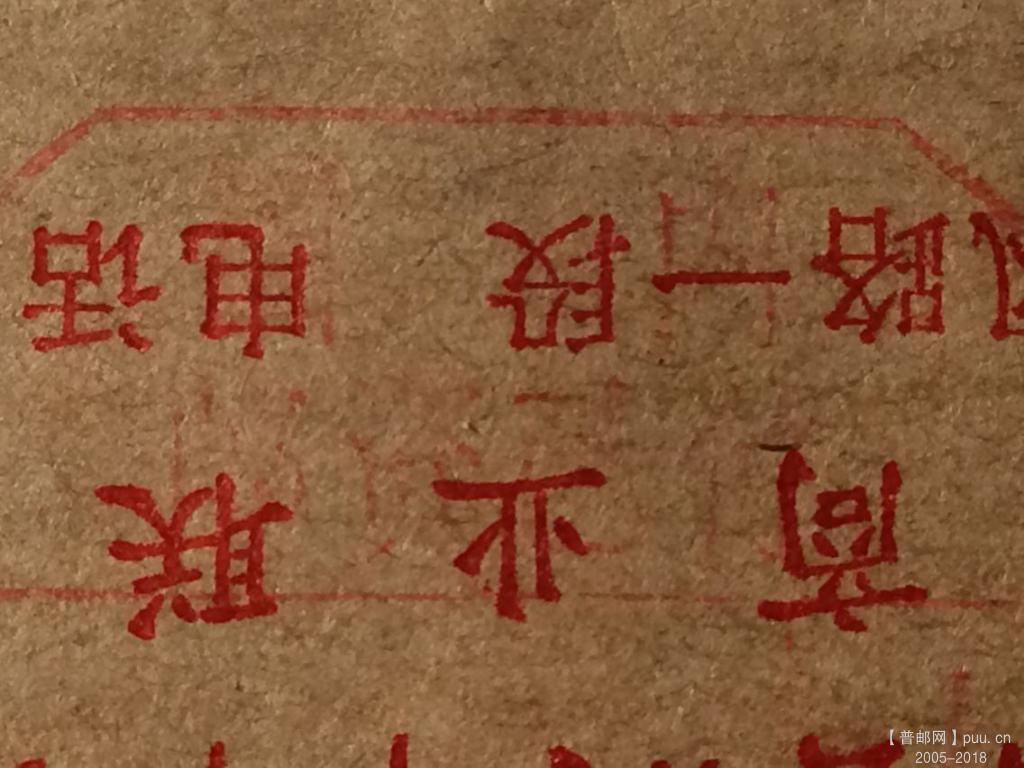 商业联
路一段 电话
【普邮网】puu.cn
2005-2018